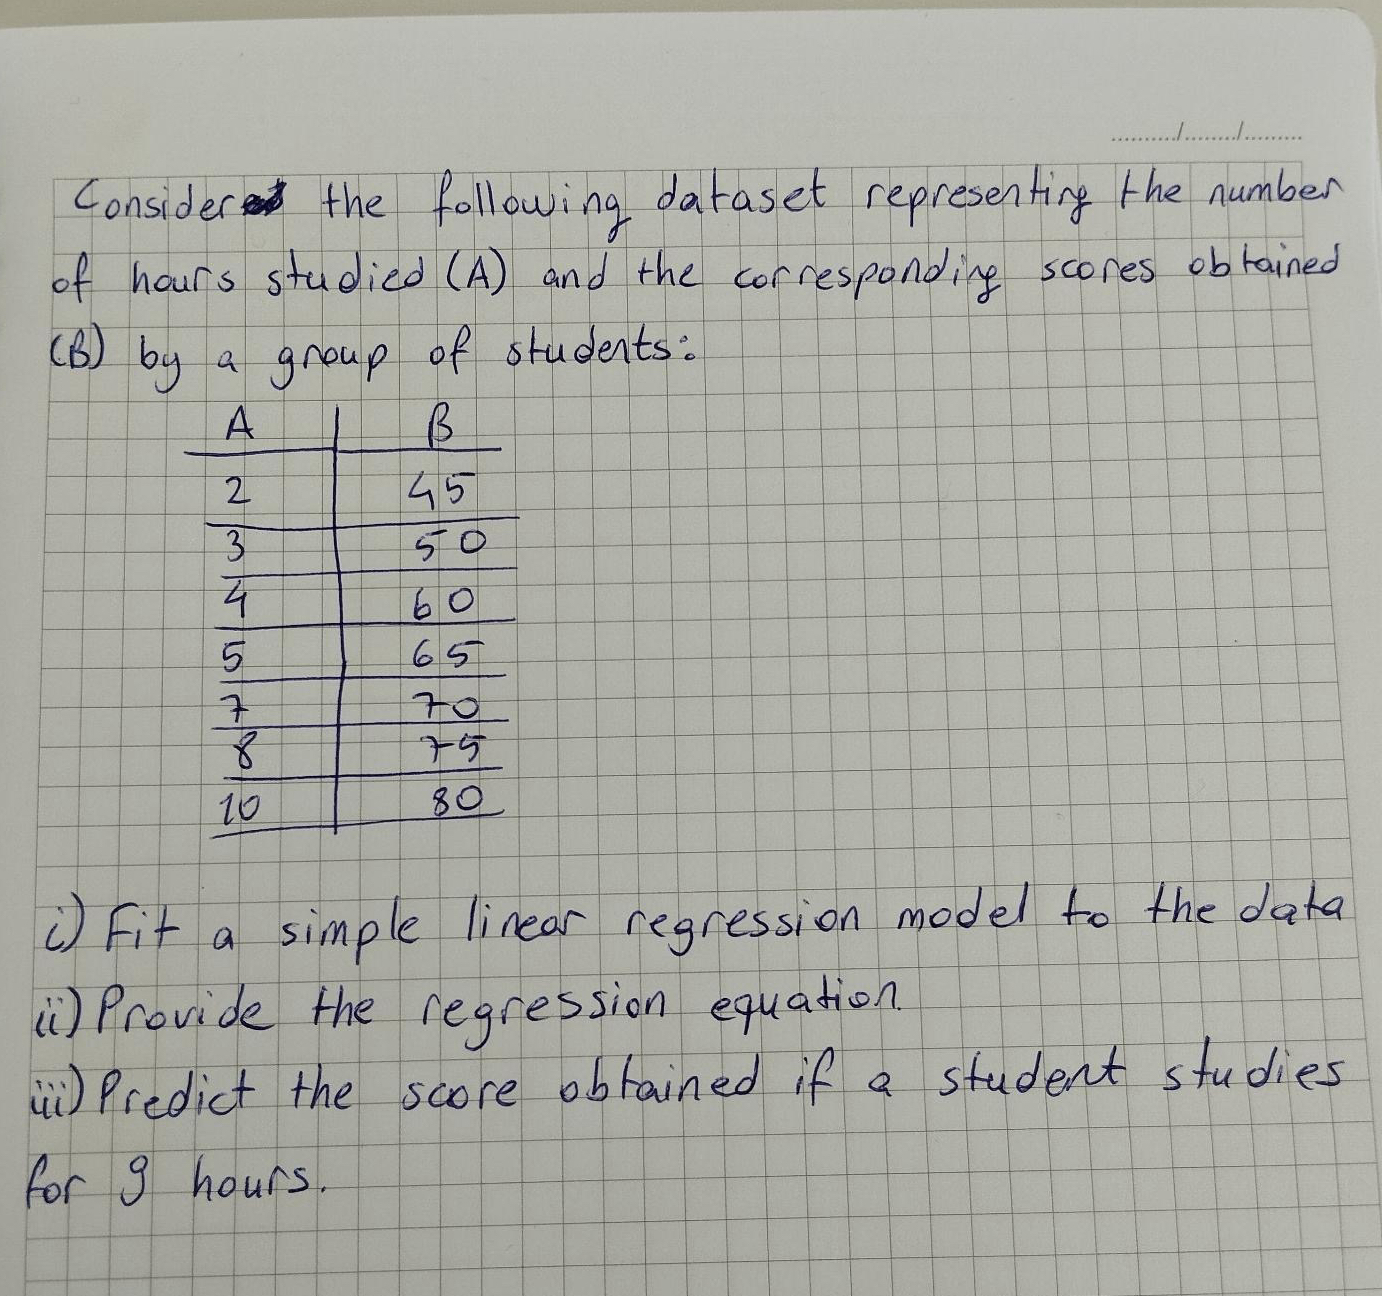 ........../........./.........
Consider the following dataset representing the number
of hours studied (A) and the corresponding scores obtained
(B) by a group of students:
A B
2 45
3 50
4 60
5 65
7 70
8 75
10 80
i) Fit a simple linear regression model to the data
ii) Provide the regression equation.
iii) Predict the score obtained if a student studies
for 9 hours.